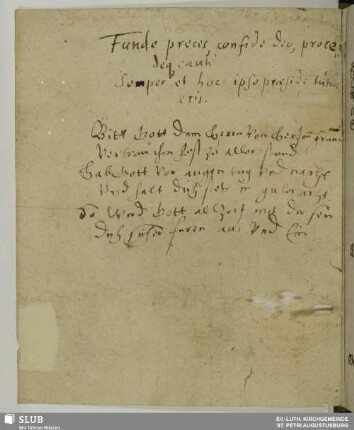 Funde preces, confide deo, proce
deq́ cauté
Semper et hoc ipso præside tutus
eris.
Bitt Gott dem Herrn von Herzen grundt
Vertrau ihm fest zu aller stund
Hab Gott vor augen tag Vnd nacht
Vnd halt dich stets in guter acht
So Wird Gott all Zeit mit dir sein
Dich füren aus Vnd Ein
SLUB
Wir führen Wissen.
EV.-LUTH. KIRCHGEMEINDE
ST. PETRI AUGUSTUSBURG